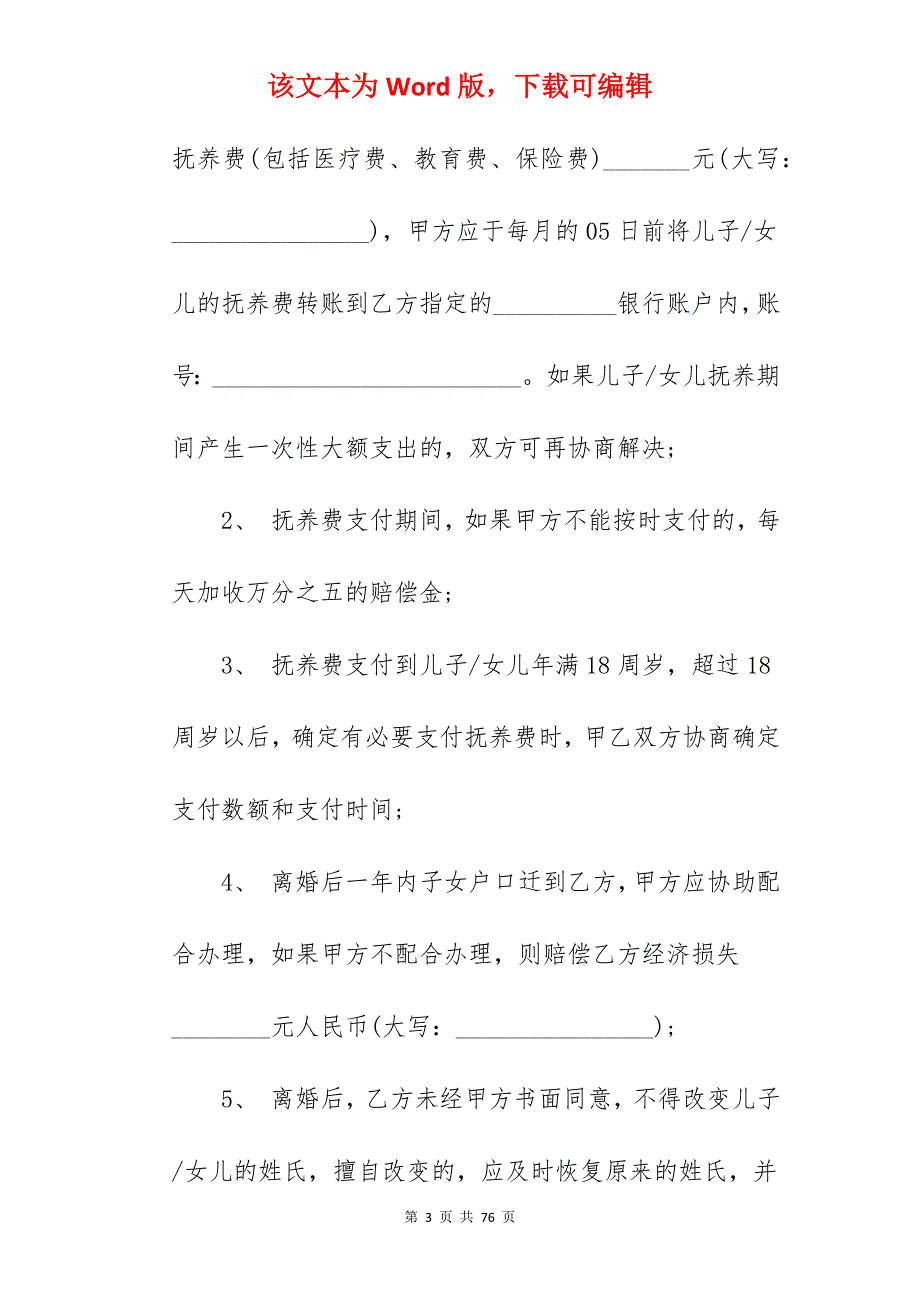 该文本为 Word 版，下载可编辑
抚养费(包括医疗费、教育费、保险费)_______元(大写:
________________)，甲方应于每月的 05 日前将儿子/女
儿的抚养费转账到乙方指定的__________银行账户内,账
号:_________________________。如果儿子/女儿抚养期
间产生一次性大额支出的，双方可再协商解决;
2、 抚养费支付期间,如果甲方不能按时支付的，每
天加收万分之五的赔偿金;
3、 抚养费支付到儿子/女儿年满 18 周岁，超过 18
周岁以后,确定有必要支付抚养费时,甲乙双方协商确定
支付数额和支付时间;
4、 离婚后一年内子女户口迁到乙方,甲方应协助配
合办理，如果甲方不配合办理，则赔偿乙方经济损失
________元人民币(大写：________________);
5、 离婚后,乙方未经甲方书面同意,不得改变儿子
/女儿的姓氏，擅自改变的，应及时恢复原来的姓氏，并
第 3 页 共 76 页